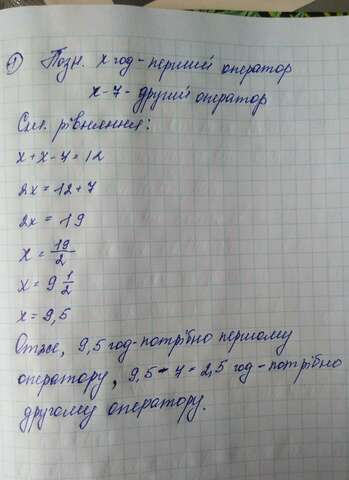 ① Позн. х год - перший оператор
х - 7 - другий оператор
Скл. рівняння:
х + х - 7 = 12
2х = 12 + 7
2х = 19
х = 19/2
х = 9 1/2
х = 9,5
Отже, 9,5 год - потрібно першому
оператору, 9,5 - 7 = 2,5 год - потрібно
другому оператору.